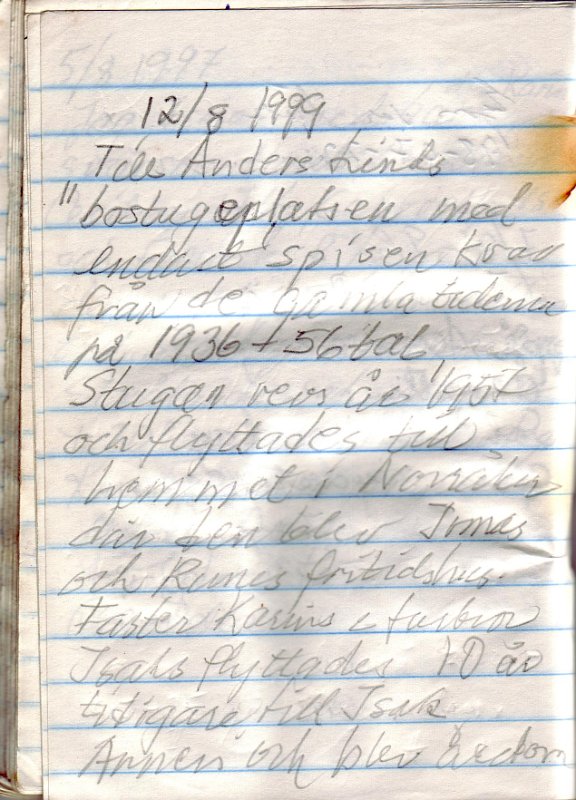 5/8 1997
12/8 1999
Till Anders Linds
"bostugeplatsen med
endast spisen kvar
från de gamla tiderna
på 1936 + 56 tal"
Stugan revs år 1957
och flyttades till
hemmet i Norråker
där den blev Irmas
och Runes fritidshus.
Faster Karins o farbror
Isaks flyttades 10 år
tidigare till Isak
och blev